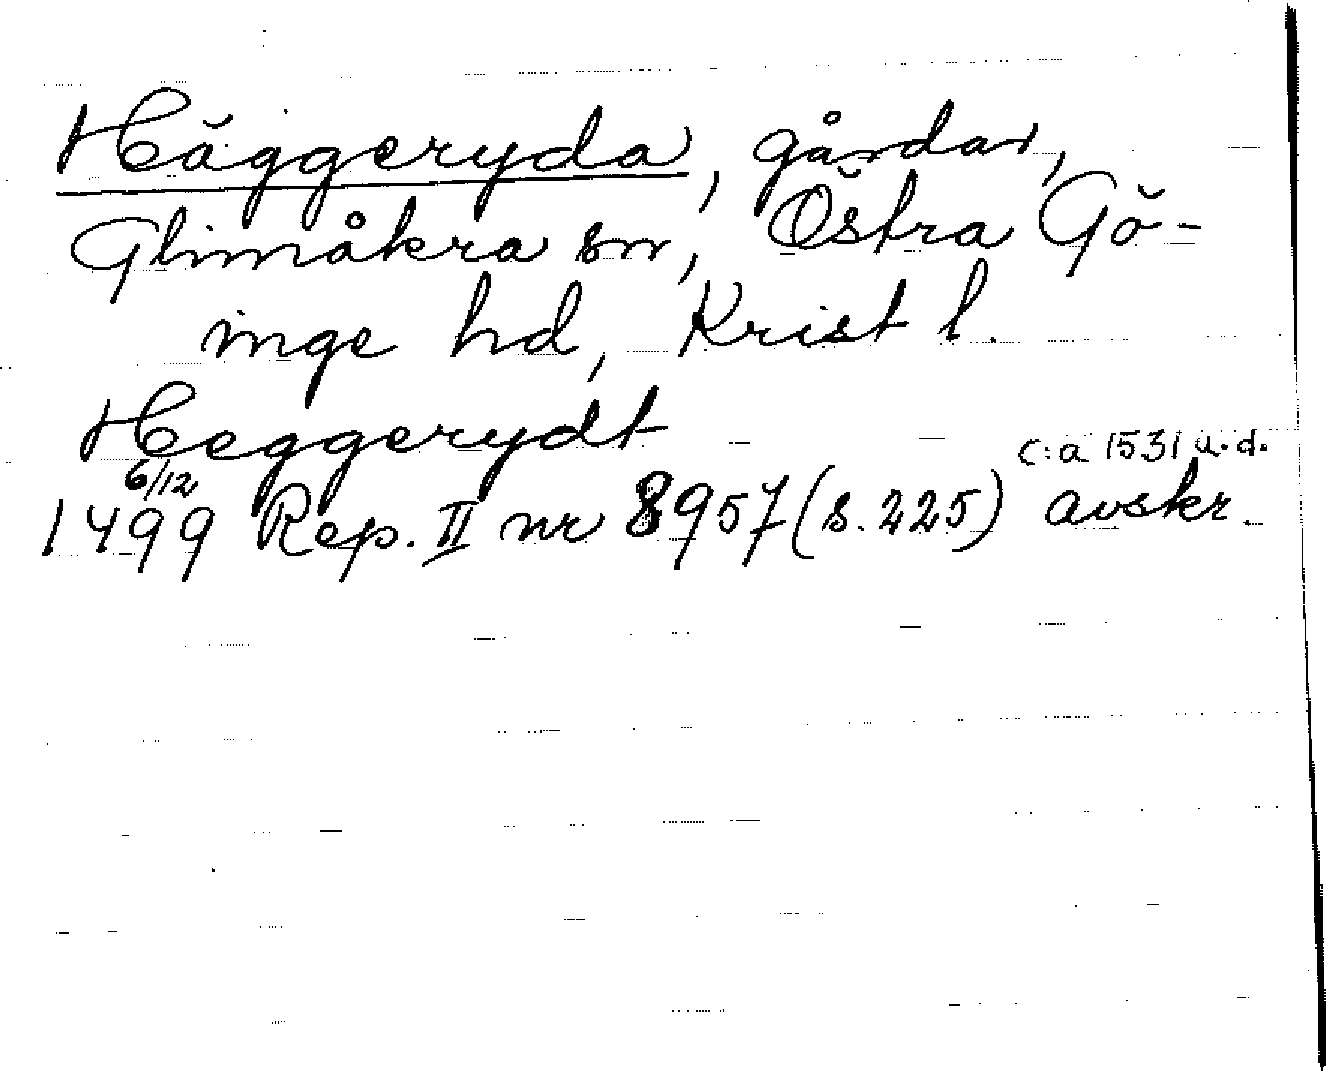 Häggeryda, gårdar,
Glimåkra sn, Östra Gö-
inge hd, Krist l.
Heggerydt
6/12 c:a 1531 u.d.
1499 Rep. II nr 8957 (s. 225) avskr.